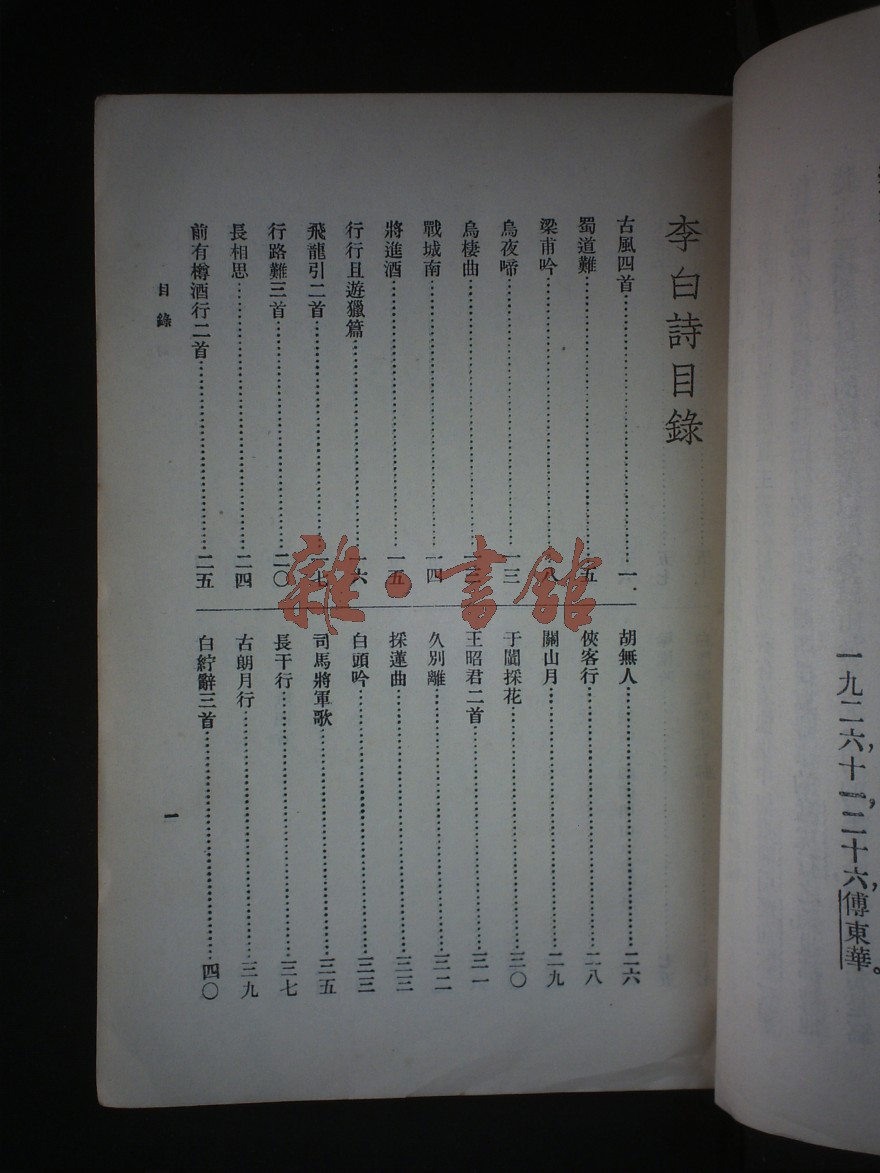 一九二六，十一，二十六，傅東華。
李白詩目錄
古風四首……一
蜀道難……五
梁甫吟……八
烏夜啼……一三
烏棲曲……
戰城南……一四
將進酒……一五
行行且遊獵篇……一六
飛龍引二首……一七
行路難三首……二〇
長相思……二四
前有樽酒行二首……二五
胡無人……二六
俠客行……二八
關山月……二九
于闐採花……三〇
王昭君二首……三一
久別離……三二
採蓮曲……三三
白頭吟……三三
司馬將軍歌……三五
長干行……三七
古朗月行……三九
白紵辭三首……四〇
目錄
一
雜·書館